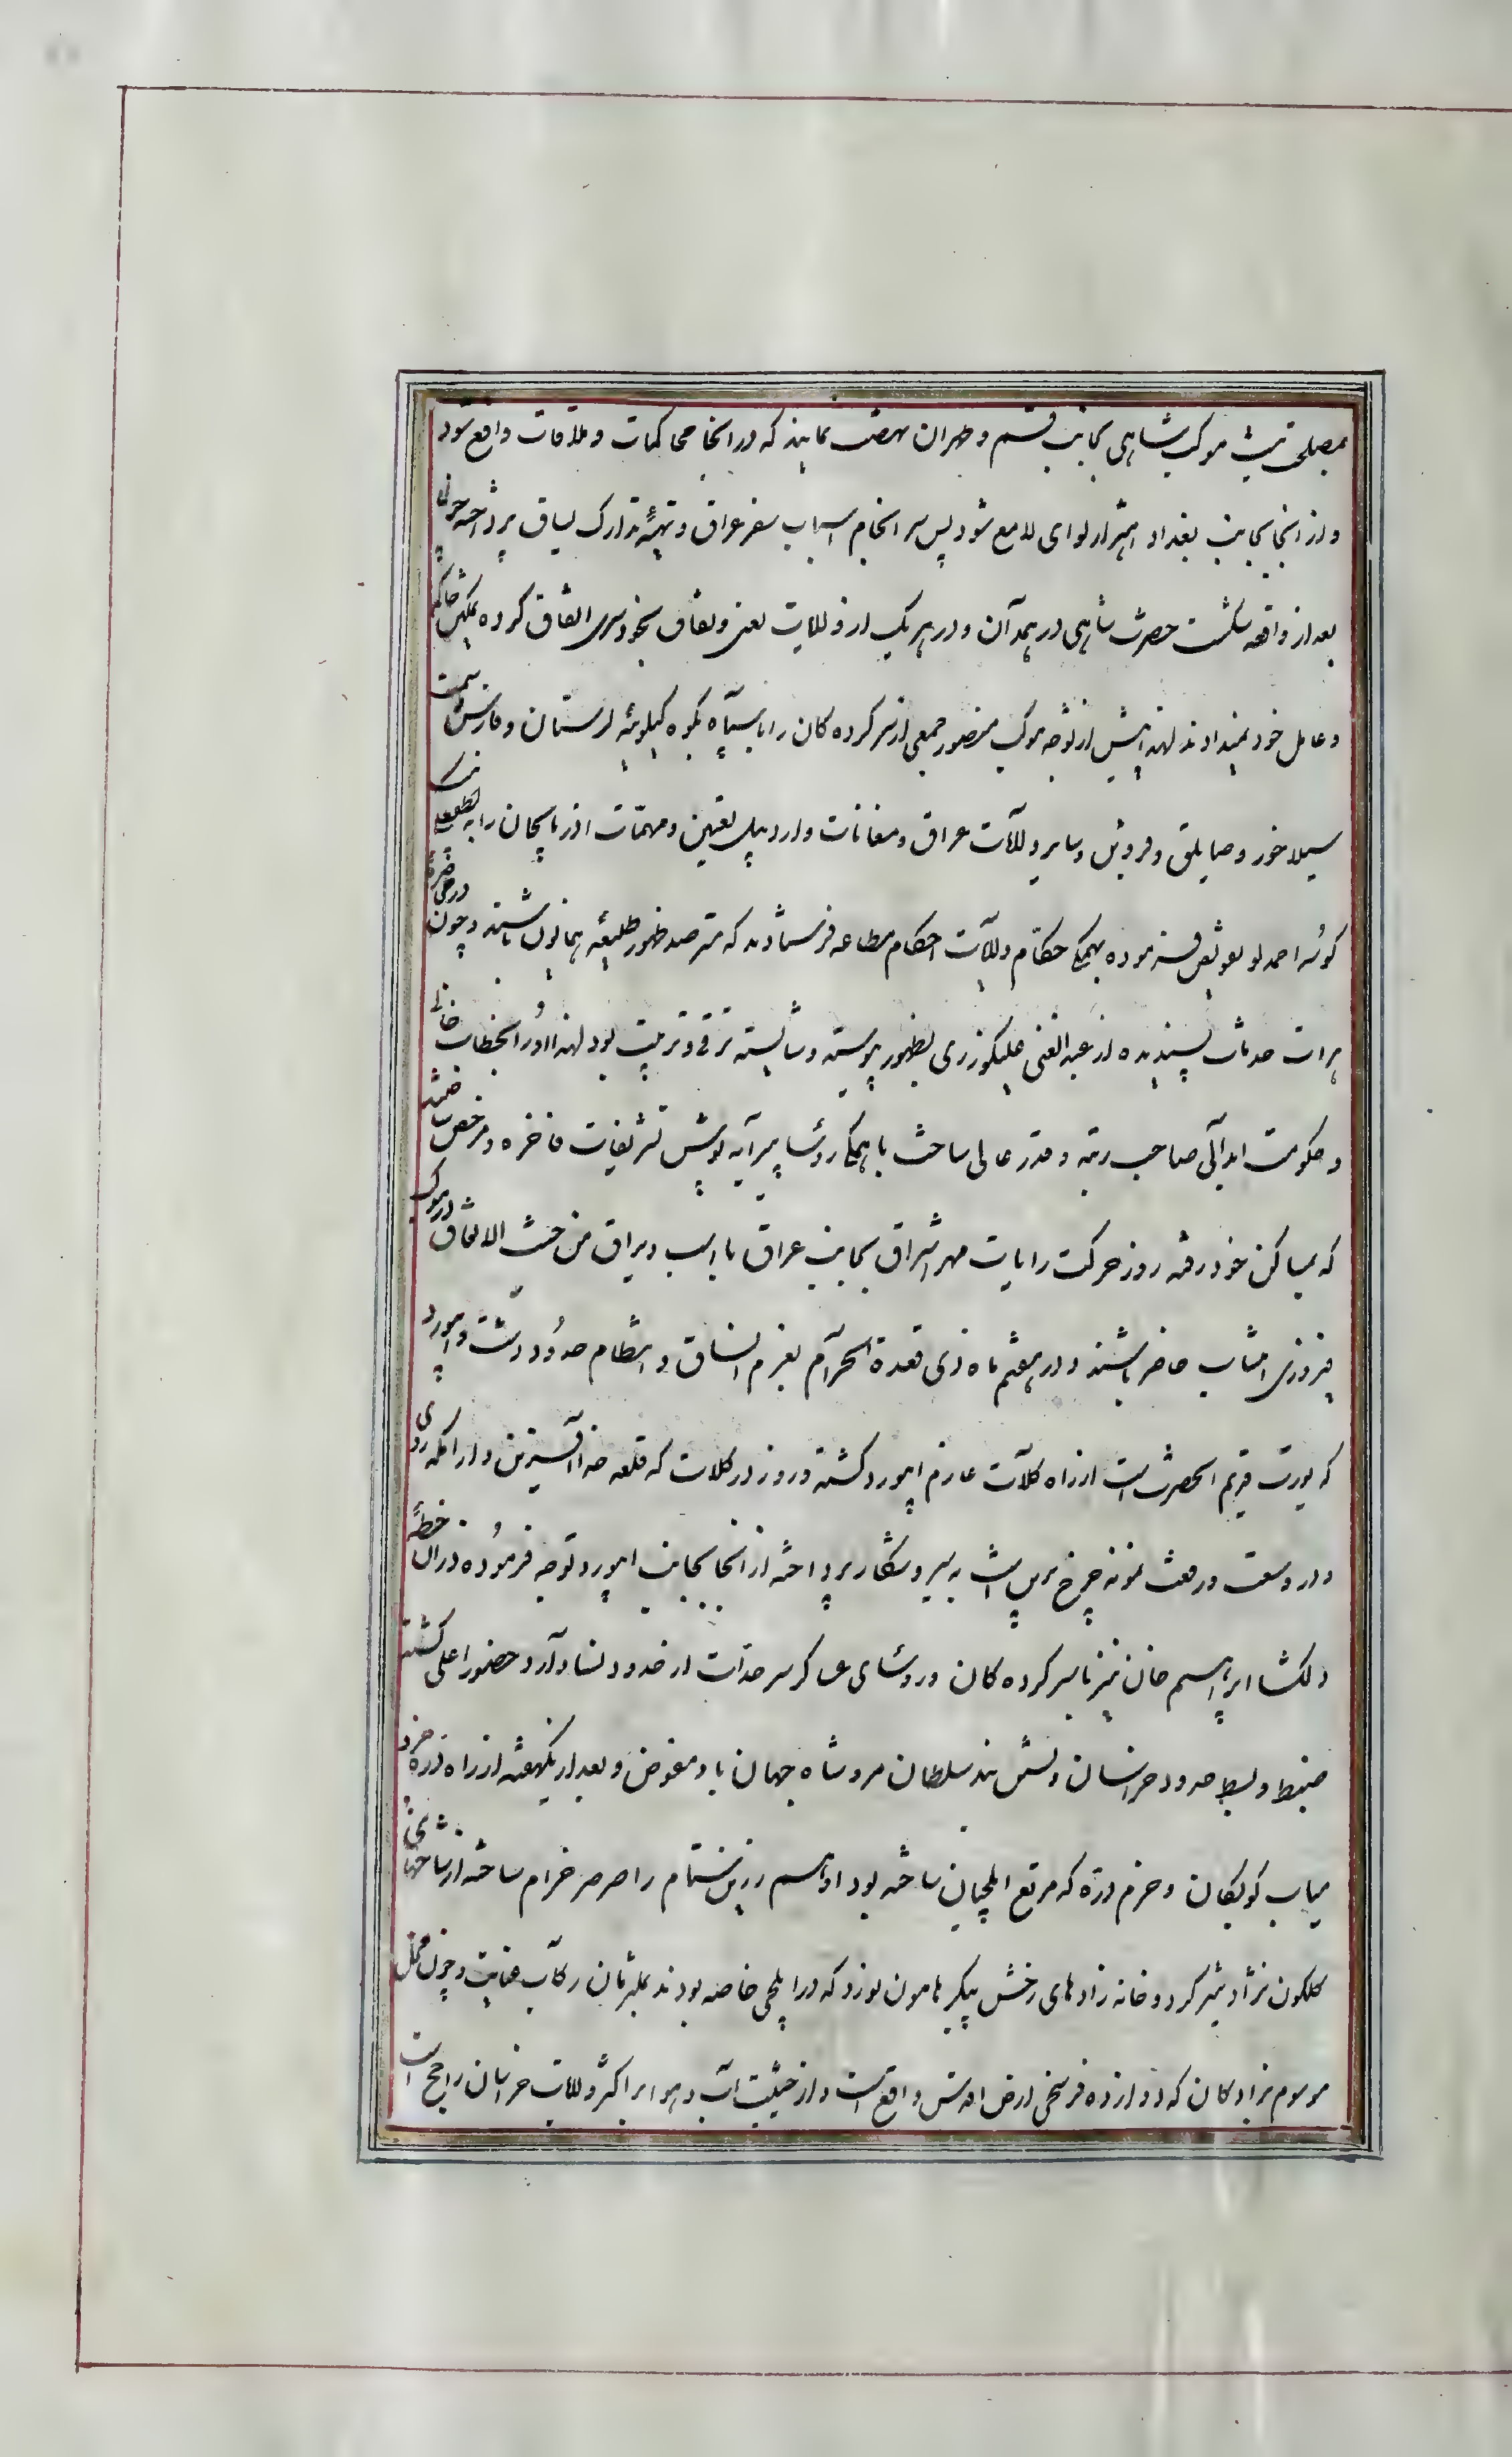 بمصلحت موکب شاهی بجانب قم و طهران نهضت نمایند که در انجا محاکمات و ملاقات واقع شود
و از انجا بجانب بغداد اهتزاز لوای لامع شود پس سر انجام اسباب سفر عراق و تهیهٔ تدارک یساق پرداخته چون
بعد از واقعه شکست حضرت شاهی در همدان و در هر یک از ولایات بخودسری اتفاق کرده تمکین حاکم
و عامل خود نمیدادند لهذا پیش از توجه موکب منصور جمعی از سرکرده کان را با سپاه بکوه کیلویه لرستان و فارس سمت
سیلاخور و جاپلق و قزوین و سایر ولایات عراق و مغانات و اردبیل تعیین و مهمات اذربایجان را به لطفعلی بیک
کوسه احمدلو تفویض فرموده بهمکی حکام ولایات احکام مطاعه فرستادند که مترصد ظهور طلیعه همایون باشند و چون در محاصره
هرات خدمات پسندیده از عبدالغنی علیکوزری بظهور پیوسته و شایسته ترقی و تربیت بود لهذا او را بخطاب خانی
و حکومت ابدالی صاحب رتبه و قدر عالی ساخت با همکی روسا پیرایه پوش تشریفات فاخره و مرخص ساختند
که بمساکن خود رفته روز حرکت رایات مهر اشراق بجانب عراق با اسب و یراق من حیث الاتفاق در موکب
فیروزی انتساب حاضر باشند و در هفتم ماه ذی قعدة الحرام بعزم انساق و انتظام حدود دشت و ابیورد
که یورت قدیم انحضرت است از راه کلات عازم ابیورد کشته دو روز در کلات که قلعه خدا آفرین و از اکمه روی
و در وسعت و رفعت نمونه چرخ برین است به سیر و شکار پرداخته از انجا بجانب ابیورد توجه فرموده در ان خطهٔ
دلکشا ابراهیم خان نیز با سرکرده کان و روسای عساکر سرحدات از حدود نسا وارد حضور اعلی کشته
ضبط و بسط حدود خراسان و سلطان مرو شاه جهان باو مفوض و بعد از یکهفته از راه دره جزد
میاب کوبکان و خرم دره که مرتع ایلچیان ساخته بود ادهم زرین ستام را صرصر خرام ساخته از ساحتها
کلکون نژاد شیر کرد و خانه زادهای رخش پیکر هامون نورد که در ایلخی خاصه بودند ملتزمان رکاب عنایت و چون محل
موسوم برادکان که دوازده فرسخی ارض اقدس واقع است و از حیثیت اب و هوا بر اکثر ولایات خراسان راجح است